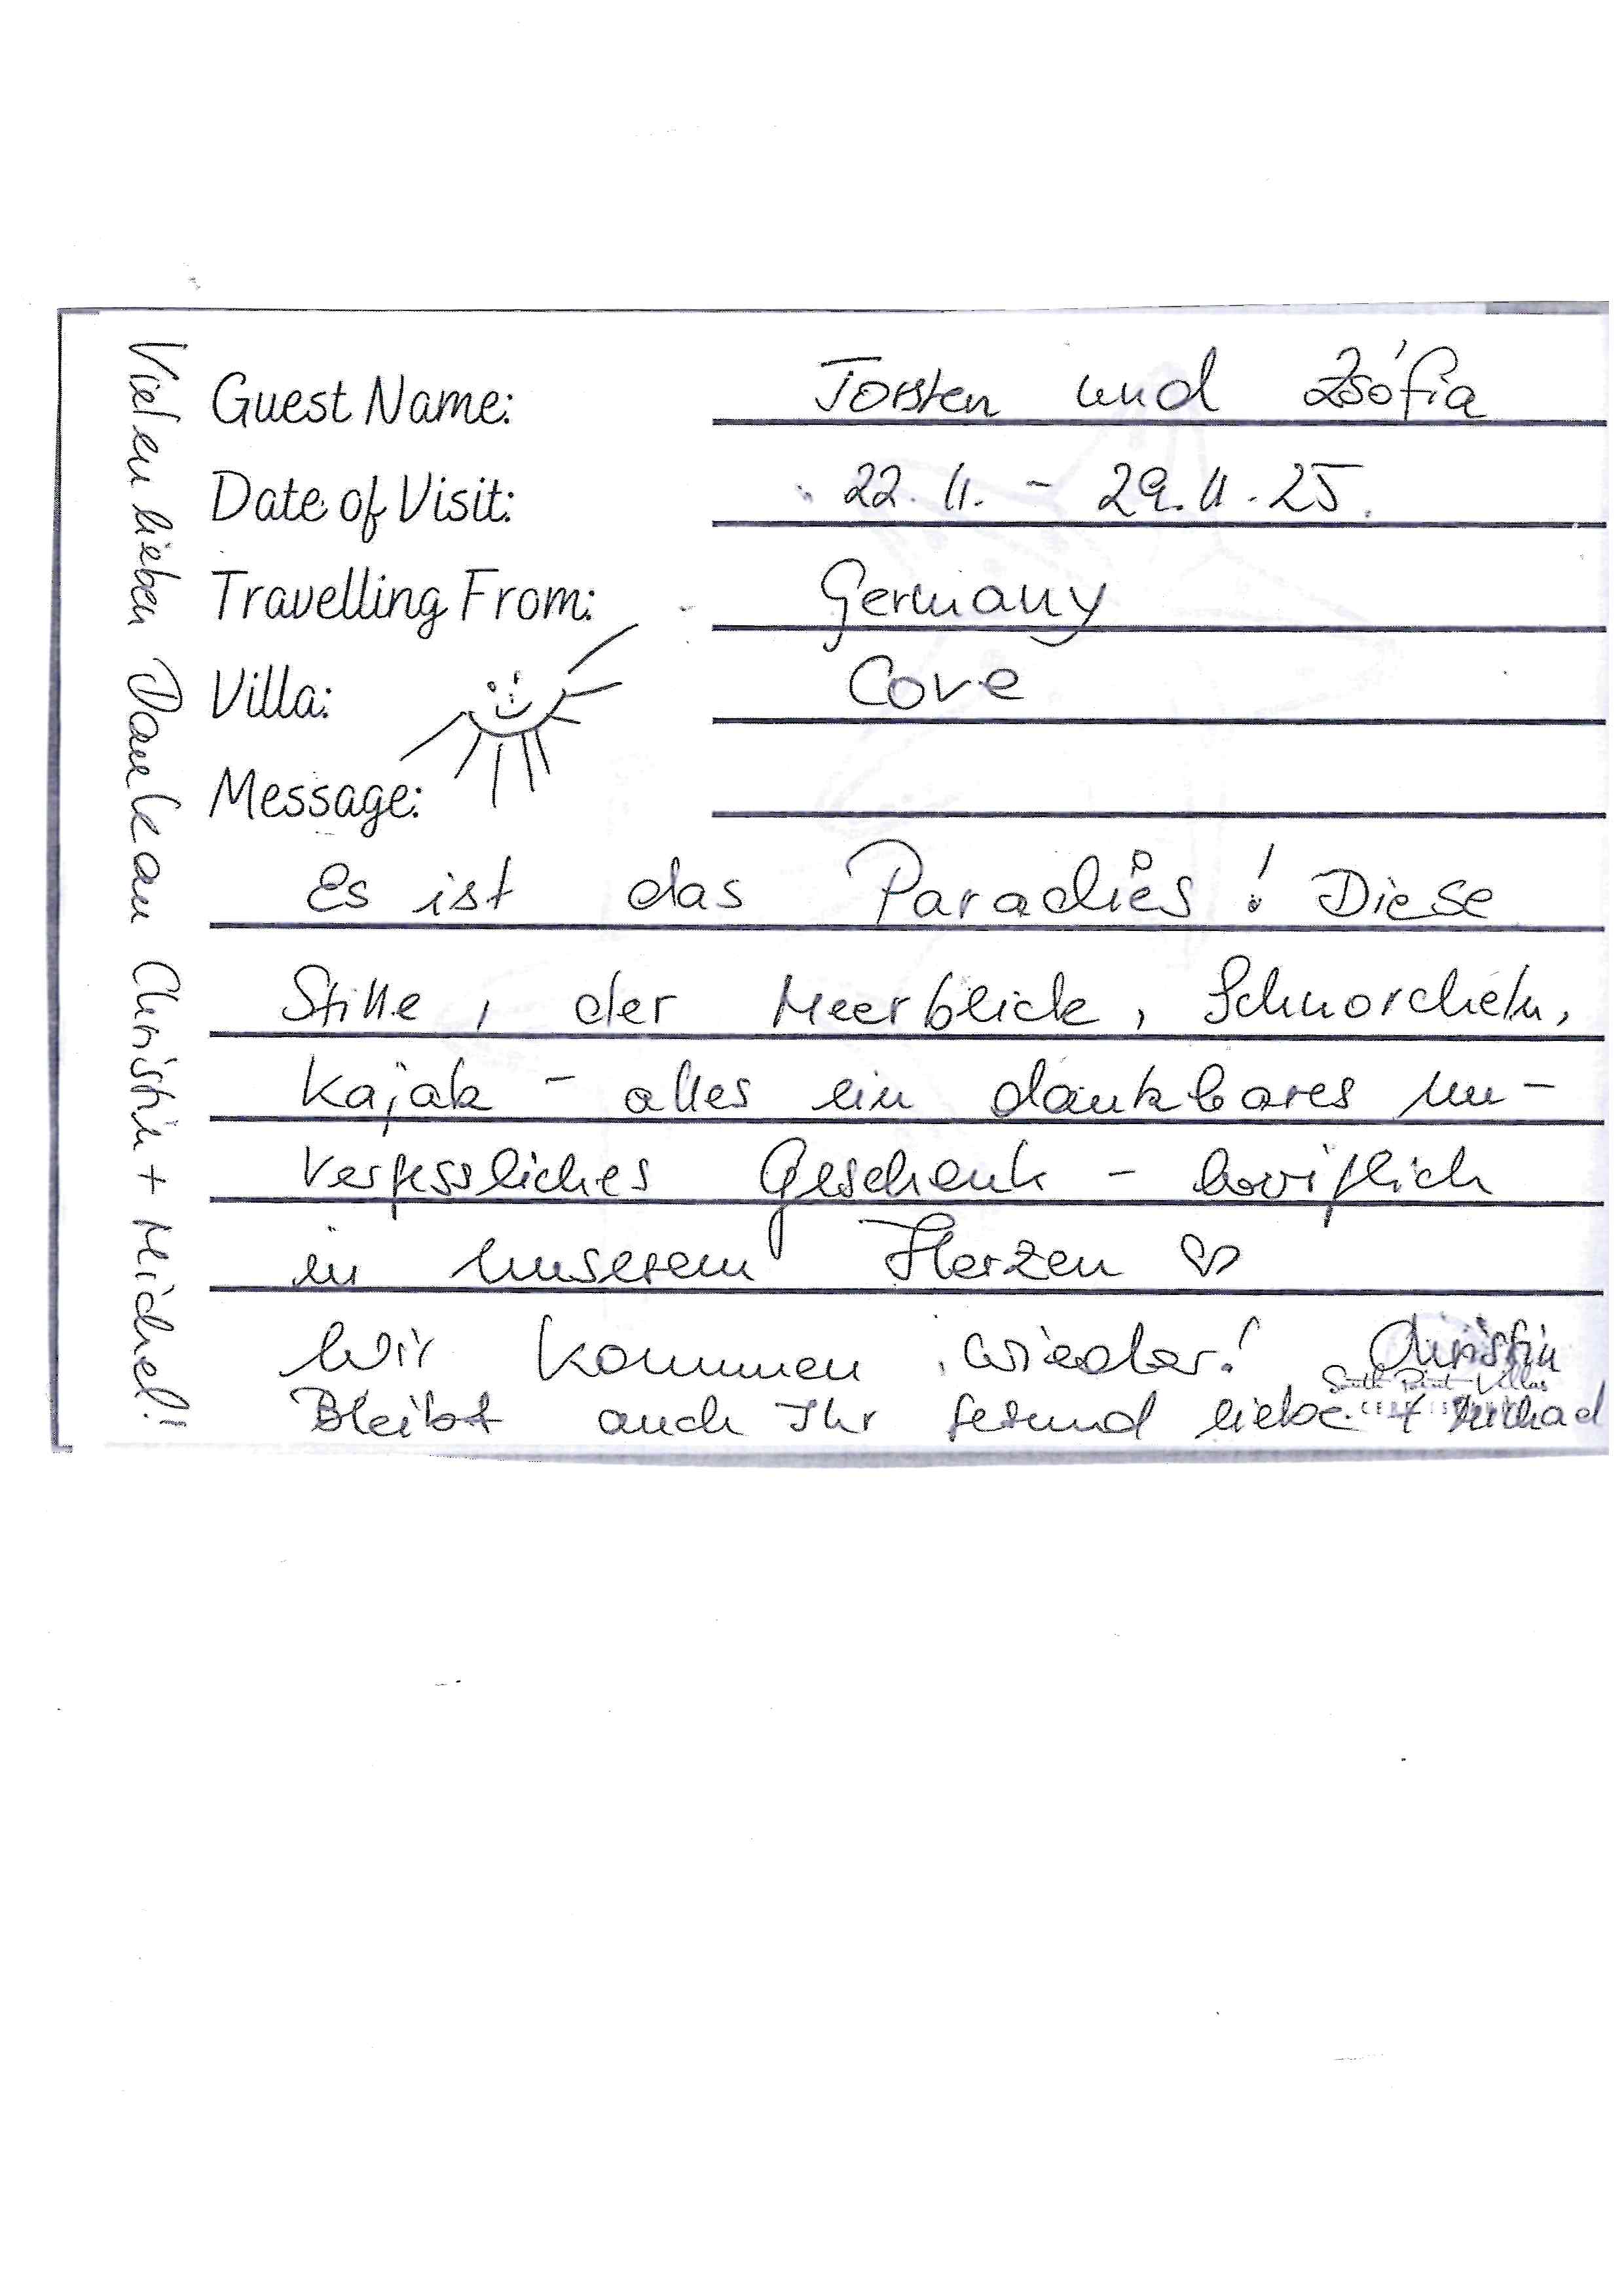 Guest Name: Torsten und Zsófia
Date of Visit: 22.11. - 29.11.25.
Travelling From: Germany
Villa: Cove
Message:
Es ist das Paradies! Diese
Stille, der Meerblick, Schnorcheln,
Kajak - alles ein dankbares un-
vergessliches Geschenk -
in unserem Herzen ♡
Wir kommen wieder! Christin
Bleibt auch Ihr gesund liebe + Michael
South Point Villas
Vielen lieben Dank an Christin + Michael!